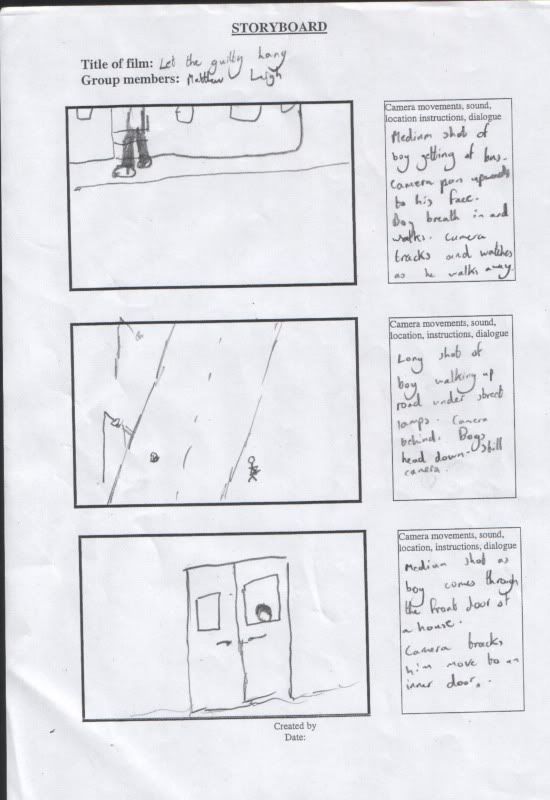 STORYBOARD
Title of film: Let the guilty hang
Group members: Matthew Leigh
Camera movements, sound,
location instructions, dialogue
Medium shot of
boy getting of bus.
Camera pan upwards
to his face.
Boy breath in and
walks. Camera
tracks and watches
as he walks away.
Camera movements, sound,
location, instructions, dialogue
Long shot of
boy walking up
road under street
lamps. Camera
behind. Boys
head down. Still
camera.
Camera movements, sound,
location, instructions, dialogue
Medium shot as
boy comes through
the front door of
a house.
Camera tracks
him move to an
inner door.
Created by
Date: